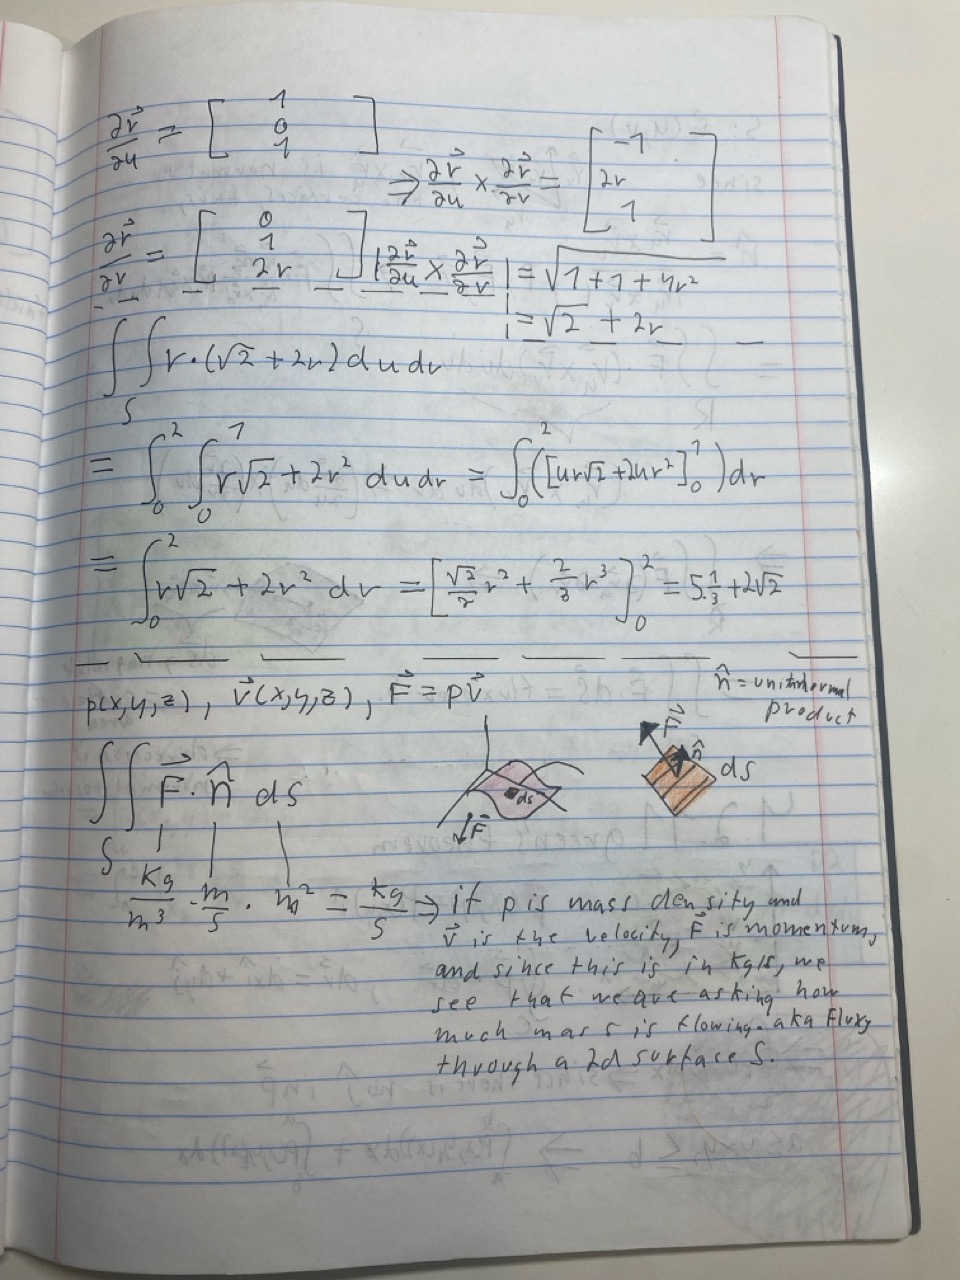 ∂r⃗/∂u = [1 0 1]
⇒ ∂r⃗/∂u × ∂r⃗/∂v = [-1 2v 1]
∂r⃗/∂v = [0 1 2v]
|∂r⃗/∂u × ∂r⃗/∂v| = √(1+1+4v²)
= √2 + 2v
∫∫_S v·(√2+2v) du dv
= ∫_0^2 ∫_0^1 v√2+2v² du dv = ∫_0^2 ([uv√2+2uv²]_0^1) dv
= ∫_0^2 v√2 + 2v² dv = [√2/2 v² + 2/3 v³]_0^2 = 5⅓ + 2√2
p(x,y,z), v⃗(x,y,z), F⃗ = pv⃗
n̂ = unit normal
product
∫∫_S F⃗·n̂ ds
F⃗
ds
F⃗
n̂
ds
kg/m³ · m/s · m² = kg/s ⇒ if p is mass density and
v⃗ is the velocity, F⃗ is momentum,
and since this is in kg/s, we
see that we are asking how
much mass is flowing. aka Flux,
through a 2d surface S.